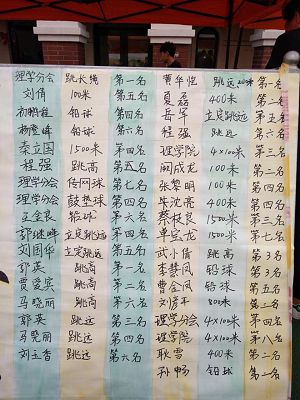 理学分会 跳长绳 第一名
刘倩 100米 第五名
铅球 第四名
杨登峰 铅球 第六名
秦立国 1500米 第四名
程强 跳高 第五名
理学分会 传网球 第七名
理学分会 鼓垫球 第四名
王金良 铅球 第六名
郭继峰 立定跳远 第四名
刘国华 立定跳远 第五名
郭英 跳高 第一名
贾爱宾 跳高 第二名
马晓丽 跳高 第六名
郭英 跳远 第三名
马晓丽 跳远 第四名
刘玉香 跳远 第六名
曹华恺 跳远 第一名
夏磊 400米 第二名
岳军 立定跳远 第五名
程强 跳远 第六名
理学院 4×100米 第三名
阚成龙 100米 第二名
张黎明 100米 第四名
朱沈亮 400米 第四名
蔡俊良 1500米 第三名
单宝龙 1500米 第七名
武小倩 跳高 第3名
李慧凤 铅球 第3名
曹金凤 铅球 第五名
刘彦不 800米
理学分会 4×100米 第四名
理学院 4×400米 第八名
耿雪 400米 第二名
孙畅 铅球 第二名